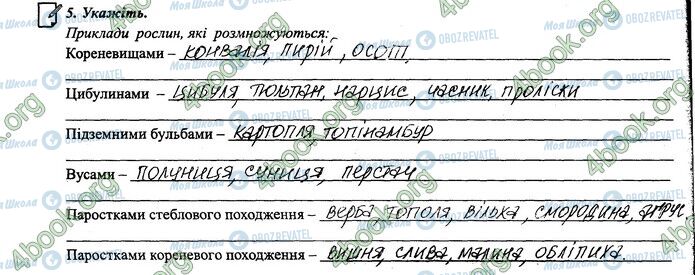 5. Укажіть.
Приклади рослин, які розмножуються:
Кореневищами – конвалія, пирій, осот.
Цибулинами – цибуля, тюльпан, нарцис, часник, проліски
Підземними бульбами – картопля топінамбур
Вусами – полуниця, суниця, перстач
Паростками стеблового походження – верба тополя, вільха, смородина, агрус
Паростками кореневого походження – вишня, слива, малина, обліпиха.